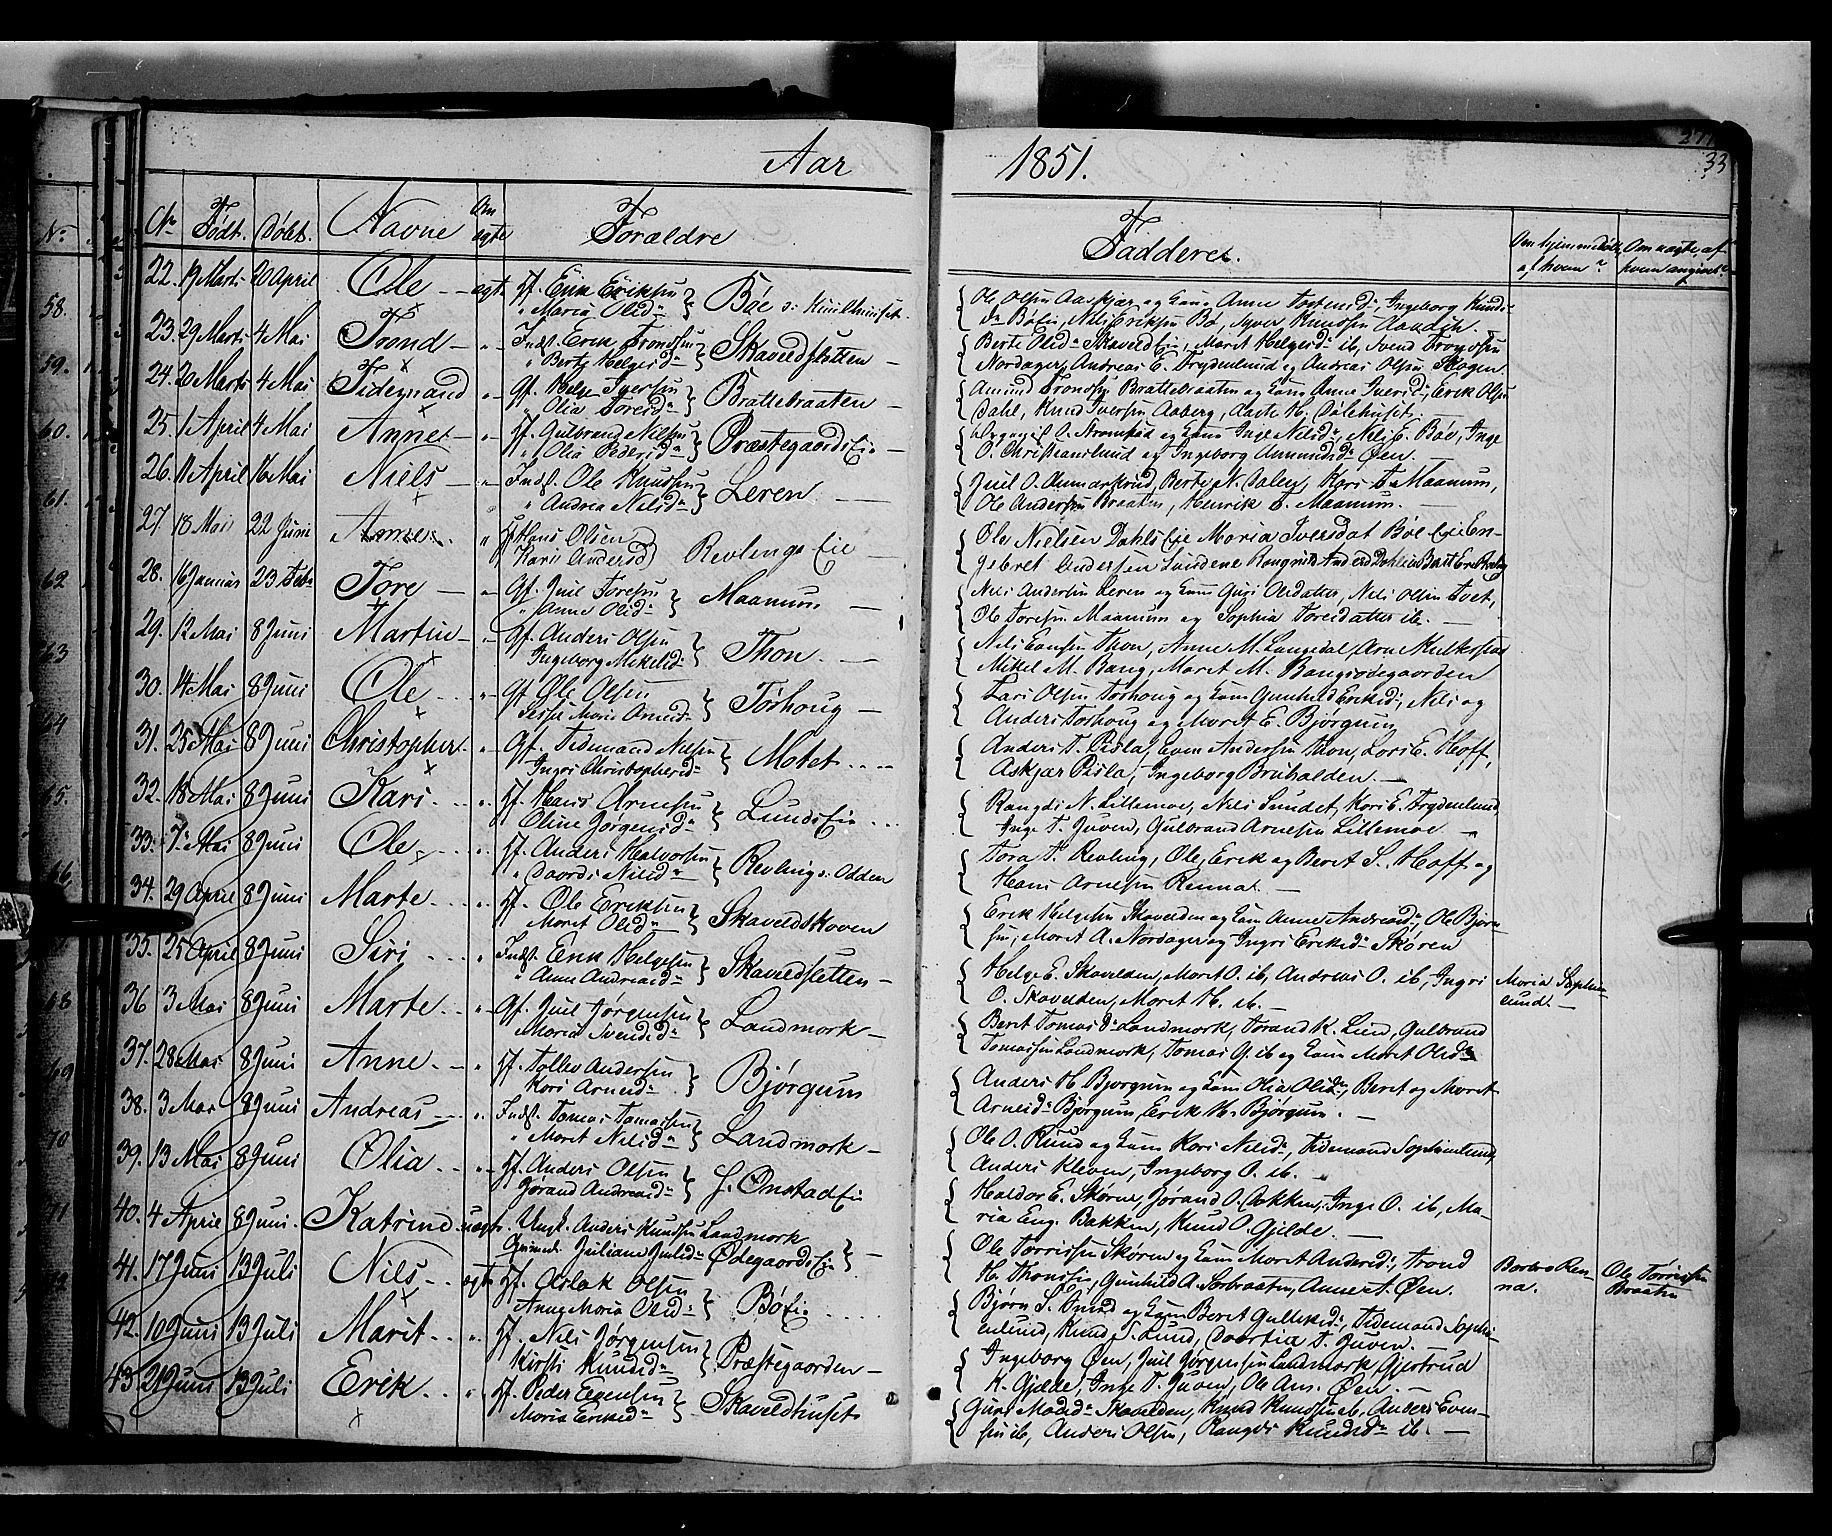 Aar 1851.
33
No Født. Døbt. Navne Om ægte Forældre Faddere.
Om hjemmedøbt, af hvem? Om uægte, af hvem angivet?
22. 19 Marts 20 April Ole ægte Gf. Erik Eriksen
Maria Olsd. Bøe
Ole Olsen Aaskjær og Kone Anne Tostensd., Ingeborg Knuds-
Nils Eriksen Bø, Syver Knudsen
23. 29 Marts 4 Mai Trond Indst. Erik Trondsen
Berte Helgesd. Skaveldsletten
Berte Olsd. Skaveld Eie, Maret Helgesd. ib, Svend Trondsen
Nordager, Andreas E. Frydenlund og Andreas Olsen Skogen.
24. 20 Marts 4 Mai Tidemand Gf. Helge Iversen
Olia Toresd. Brattebraaten
Amund Trondsen Brattebraaten og Kone Anne Iversd., Erik Olsen
Dahl, Knud Iversen Aaberg,
25. 1 April 4 Mai Anne Hf. Gulbrand Nilsen
Olia Pedersd. Præstegaards Eie
og Kone Inge Nilsd., Nils E. Bøe, Inge
O. Christianslund og Ingeborg Amundsd. Øen.
26. 11 April 16 Mai Niels Indst. Ole Knudsen
Andrea Nilsd. Leren
Juil O. Aumarkrud, Berte N. Dalen, Kari T. Maanum,
Ole Andersen Braaten, Henrik T. Maanum.
27 18 Mai 22 Juni Anne Hf Hans Olsen
Karis Andersd Revlings Eie
Ole Nielsen Dahls Eie Maria Iversdat Bøe Eie En-
gebret Andersen Lundene Rangnild Andersd
28. 16 Januar 23 Feb. Tore Gf. Juil Toresen
Anne Olsd. Maanum
Nils Andersen Leren og Kone Guri Olsdatter, Nils Olsen Tvet,
Ole Toresen Maanum og Sophia Toresdatter ib.
29. 12 Mai 8 Juni Martin Gf. Anders Olsen
Ingeborg Mikelsd. Thon.
Nils Evensen Thon, Anne M. Langedal, Arne
Mikel M. Bang, Maret M. Bangsødegaarden
30. 14 Mai 8 Juni Ole Gf Ole Olsen
Marie Amundsd. Tørhoug
Lars Olsen Torhoug og Kone Gunhild Eriksd., Nils og
Anders Torhoug og Maret E. Bjørgum.
31. 25 Mai 8 Juni Christopher Gf. Tidemand Nilsen
Ingri Christophersd. Motet
Anders T. Pisla, Even Andersen Thon, Lars E. Hoff,
Askjær Pisla, Ingeborg Bruhalden.
32. 18 Mai 8 Juni Kari Hf. Hans Arnesen
Oline Jørgensd. Lunds Eie
Rangdi N. Lillemoe, Nils Lundet, Kari E. Frydenlund
Inge T. Juven, Gulbrand Arnesen Lillemoe
33. 7 Mai 8 Juni Ole Hf. Anders Halvorsen
Nilsd. Revling v. Odden
Tora T. Revling, Ole, Erik og Beret S. Hoff og
Hans Arnesen Rennat.
34. 29 April 8 Juni Marte Hf. Ole Eriksen
Maret Olsd. Skaveldskoven
Erik Helgesen Skavelden og Kone Anne Andreasd. Ole Bjørn-
sen, Maret A. Nordager og Ingri Eriksd. Skøren
35. 25 April 8 Juni Siri Indst. Erik Helgesen
Anne Andreasd. Skaveldsletten
Helge E. Skavelden, Maret O. ib, Andreas O. ib, Ingri
O. Skavelden, Maret H. ib.
Maria Sophin-
lund.
36 3 Mai 8 Juni Marte Gf. Juil Jørgensen
Maria Svendsd. Landmork
Beret Tomasd. Landmork, Torand K. Lien, Gulbrand
Tomassen Landmork, Tomas G. ib og Kone Maret Olsd.
37. 28 Mai 8 Juni Anne Hf. Tollev Andersen
Kari Arnesd. Bjørgum
Anders H. Bjørgum og Kone Olia Olsd., Beret og Maret
Arnesd. Bjørgum, Erik H. Bjørgum.
38. 3 Mai 8 Juni Andreas Indst. Tomas Tomassen
Maret Nilsd. Landmork
Ole O. Ruud og Kone Kari Nilsd., Tidemand Sophienlund,
Anders Kleven, Ingeborg O. ib.
39. 13 Mai 8 Juni Olia Hf. Anders Olsen
Jørand Andreasd. Ønstad Eie
Haldor E. Skørne, Jørand O. Bakken, Inge O. ib, Ma-
ria Eng. Bakken, Knud O. Gjelde.
40. 4 April 8 Juni Katrine uægte Ungk. Anders Knudsen Landmork
Juliane Juilsd. Ødegaards Eie
Ole Torrissen Skøren og Kone Maret Andersd., Trond
H. Gunhild A. Sorbraaten, Anne A. Øen.
Barbro Ren-
na. Ole Torrissen
Braaten
41. 17 Juni 13 Juli Nils ægte Hf. Aslak Olsen
Anne Maria Olsd. Bø Eie
Bjørn S. og Kone Beret Gulleksd., Tidemand Sophi-
enlund, Knud S. Lund, T. Juven.
42. 10 Juni 13 Juli Marit Hf. Nils Jørgensen
Kirsti Knudsd. Præstegaarden
Ingeborg Øen, Juil Jørgensen Landmork, Gjertrud
K. Gjelde, Inge T. Juven, Ole Ans. Øen.
43 21 Juni 13 Juli Erik Hf. Peder Evensen
Maria Eriksd. Skaveldhuset
Guri Madsd. Skavelden, Knud Knudsen ib, Anders Even-
sen ib, Anders Olsen, Rangdi Knudsd. ib.
58.
59.
60.
61.
62.
63
64
65.
66.
68
69
70
71
72